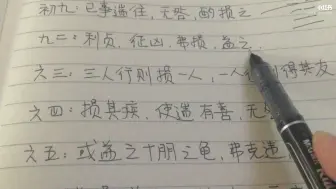 初九：已事遄往，无咎，酌损之
九二：利贞，征凶，弗损，益之
六三：三人行则损一人，一人行则得其友
六四：损其疾，使遄有喜，无
六五：或益之十朋之龟，弗克违